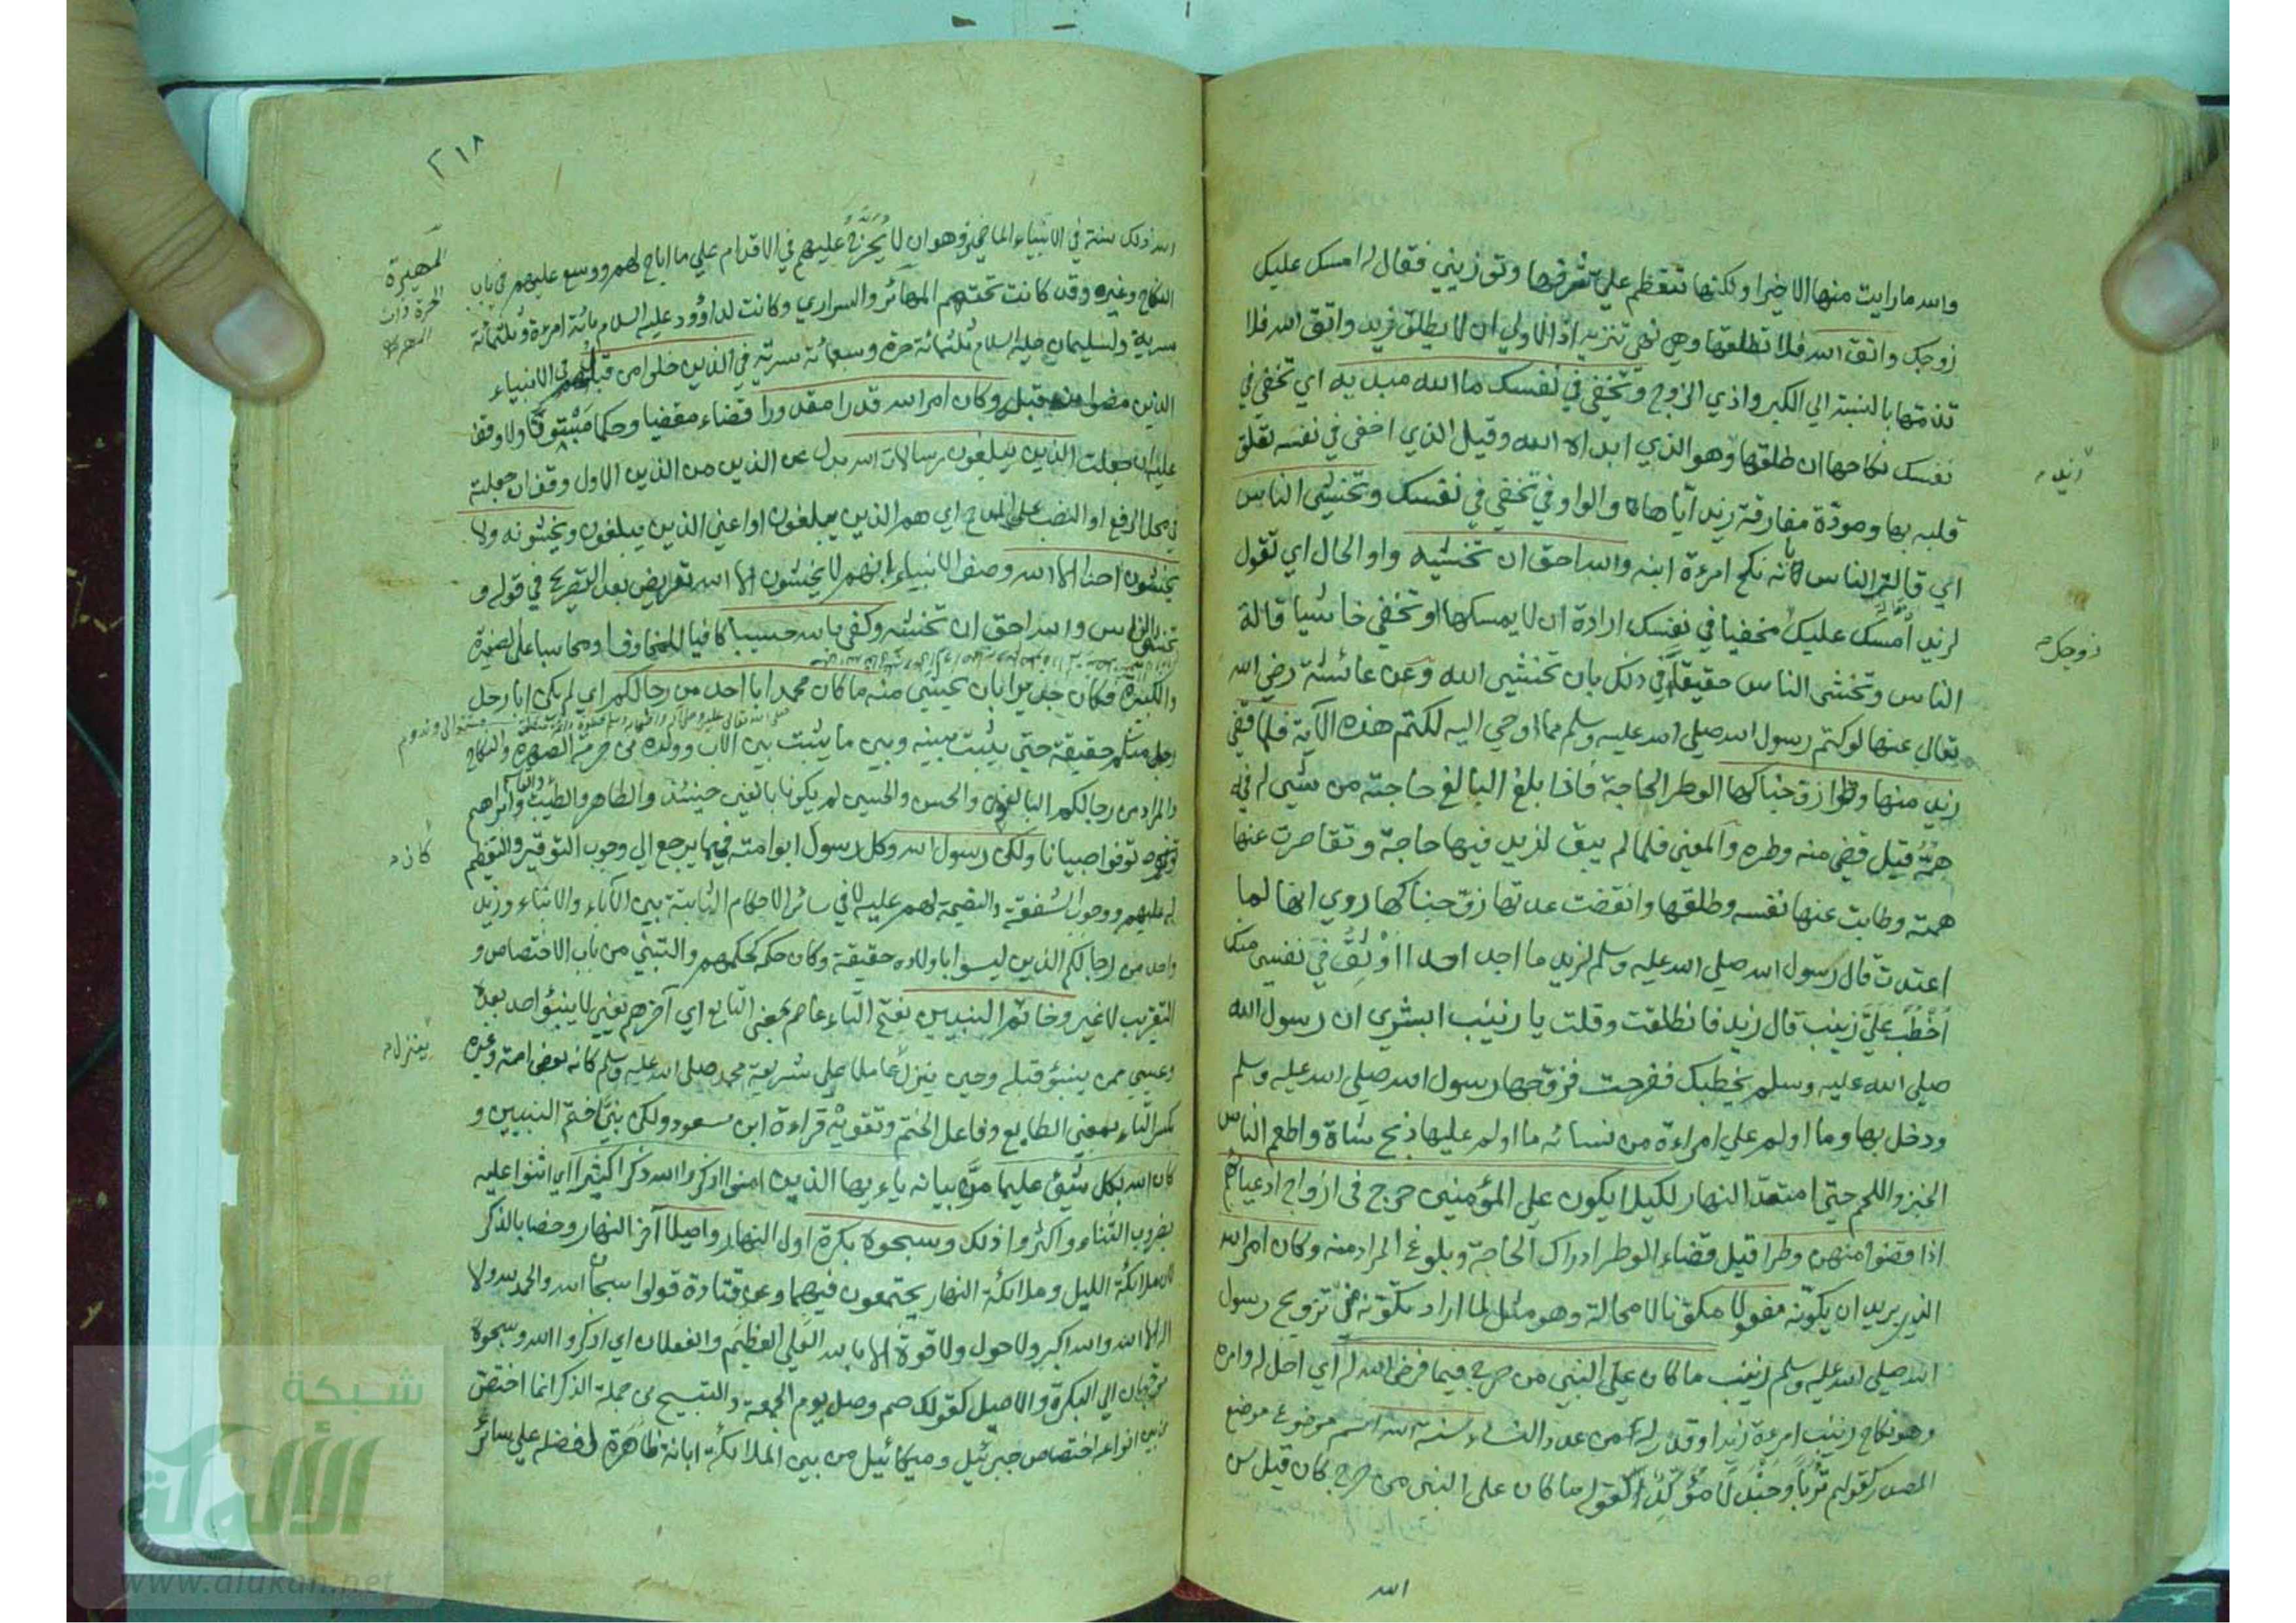 والله ما رايت منها الا خيرا ولكنها تتعظم علي بشرفها وتوذيني فقال له امسك عليك
زوجك واتق الله فلا تطلقها وهي نهي تنزيه اذ الاولي ان لا يطلق فزيد واتق الله فلا
تذمها بالنسبة الي الكبر واذي الزوج وتخفي في نفسك ما الله مبديه اي تخفي في
نفسك نكاحها ان طلقها وهو الذي ابداه الله وقيل الذي اخفي في نفسه تعلق
قلبه بها ومودة مفارقة زيد اياها والواو في تخفي في نفسك وتخشي الناس
اي قالة الناس بانه نكح امرءة ابنه والله احق ان تخشيه واو الحال اي تقول
لزيد امسك عليك مخفيا في نفسك ارادة ان لا يمسكها او تخفي خاشيا قالة
الناس وتخشي الناس حقيقا في ذلك بان تخشي الله وعن عائشة رضي الله
تعالي عنها لو كتم رسول الله صلي الله عليه وسلم مما اوحي اليه لكتم هذه الآية فلما قضي
زيد منها وطرا زوجناكها الوطر الحاجة فاذا بلغ البالغ حاجته من شيي له فيه
همّة قيل قضي منه وطره والمعني فلما لم يبق لزيد فيها حاجة وتقاصرت عنها
همته وطابت عنها نفسه وطلقها وانقضت عدتها زوجناكها روي انها لما
اعتدت قال رسول الله صلي الله عليه وسلم لزيد ما اجد احدا اوثق في نفسي منك
اخطب عليّ زينب قال زيد فانطلقت وقلت يا زينب ابشري ان رسول الله
صلي الله عليه وسلم يخطبك ففرحت فزوجها رسول الله صلي الله عليه وسلم
ودخل بها وما اولم علي امراءة من نسائه ما اولم عليها ذبح شاة واطعم الناس
الخبز واللحم حتي امتدّ النهار لكيلا يكون علي المؤمنين حرج في ازواج ادعيائهم
اذا قضوا منهن وطرا قيل قضاء الوطر ادراك الحاجة وبلوغ المراد منه وكان امر الله
الذي يريد ان يكوّنه مفعولا مكوّنا لا محالة وهو مثل لما اراد تكوّنه من تزويج رسول
الله صلي الله عليه وسلم زينب ما كان علي النبي من حرج فيما فرض الله له اي احل له وامره
وهو نكاح زينب امرءة زيد او قدر له من عدد النساء سنة الله اسم موضوع موضع
المصدر كقولهم تُربًا وجَندلًا مؤكّد لقوله ما كان علي النبي من حرج كان قيل سن
الله
زيد
زوجك
٢١٨
الله ذلك سنة في الانبياء الماضين وهو ان لا يُحَرَّج عليهم في الاقدام علي ما اباح لهم ووسع عليهم في باب
النكاح وغيره وقد كانت تحتهم المهائر والسراري وكانت لداوود عليه السلام مائة امرءة وثلثمائة
سرية ولسليمان عليه السلام ثلثمائة حرة وسبعمائة سرية في الذين خلوا من قبل في الانبياء
الذين مضوا من قبل وكان امر الله قدرا مقدورا قضاء مقضيا وحكما مبتوتا ولا وقف
عليه ان جعلت الذين يبلغون رسالات الله بدل من الذين من الذين الاول وقف ان جعلته
في محل الرفع او النصب علي المدح اي هم الذين يبلغون او اعني الذين يبلغون ويخشونه ولا
يخشون احدا الا الله وصف الانبياء بانهم لا يخشون الا الله تعريض بعد التصريح في قوله و
تخشي الناس والله احق ان تخشه وكفي بالله حسيبا كافيا للمخاوف او محاسبا علي الصغيرة
والكبيرة فكان جديرا بان يخشي منه ما كان محمد ابا احد من رجالكم اي لم يكن ابا رجل
رجل منكم حقيقة حتي يثبت بينه وبين ما يثبت بين الاب وولده من حرمة الصهر والنكاح
والمراد من رجالكم البالغون والحسن والحسين لم يكونا بالغين حينئذ والطاهر والطيب والقاسم وابراهيم
توفوا صبيانا ولكن رسول الله وكل رسول ابو امته فيما يرجع الي وجوب التوقير والتعظيم
له عليهم ووجوب الشفقة والنصيحة لهم عليه لا في سائر الاحكام الثابتة بين الآباء والابناء وزيد
واحد من رجالكم الذين ليسوا باولاده حقيقة وكان حكمه كحكمهم والتبني من باب الاختصاص و
التقريب لا غير وخاتم النبيين بفتح التاء عاصم بمعني الطابع اي آخرهم يعني لا ينبؤ احد بعده
وعيسي ممن ينبؤ قبله وحين ينزل عاملا علي شريعة محمد صلي الله عليه وسلم كانه بعض امته وغيره
بكسر التاء بمعني الطابع وفاعل الختم وتقويه قراءة ابن مسعود ولكن نبيّا ختم النبيين و
كان الله بكل شيئ عليما مرّ بيانه ياءيها الذين امنوا اذكروا الله ذكرا كثيرا اي اثنوا عليه
بضروب الثناء واكثروا ذلك وسبحوه بكرة اول النهار واصيلا آخر النهار وخصا بالذكر
لان ملائكة الليل وملائكة النهار يجتمعون فيهما وعن قتادة قولوا سبحان الله والحمد لله ولا
اله الا الله والله اكبر ولا حول ولا قوة الا بالله العلي العظيم والفعلان اي اذكروا الله وسبحوه
موجهان الي البكرة والاصيل كقولك صم وصل يوم الجمعة والتسبيح من جملة الذكر انما اختص
من بين انواعه اختصاص جبرئيل وميكائيل من بين الملائكة ابانة ظاهرة لفضله علي سائر
المهيرة
الحرة ذات
المهر
كان
ينزل
شبكة
الألوكة
www.alukah.net